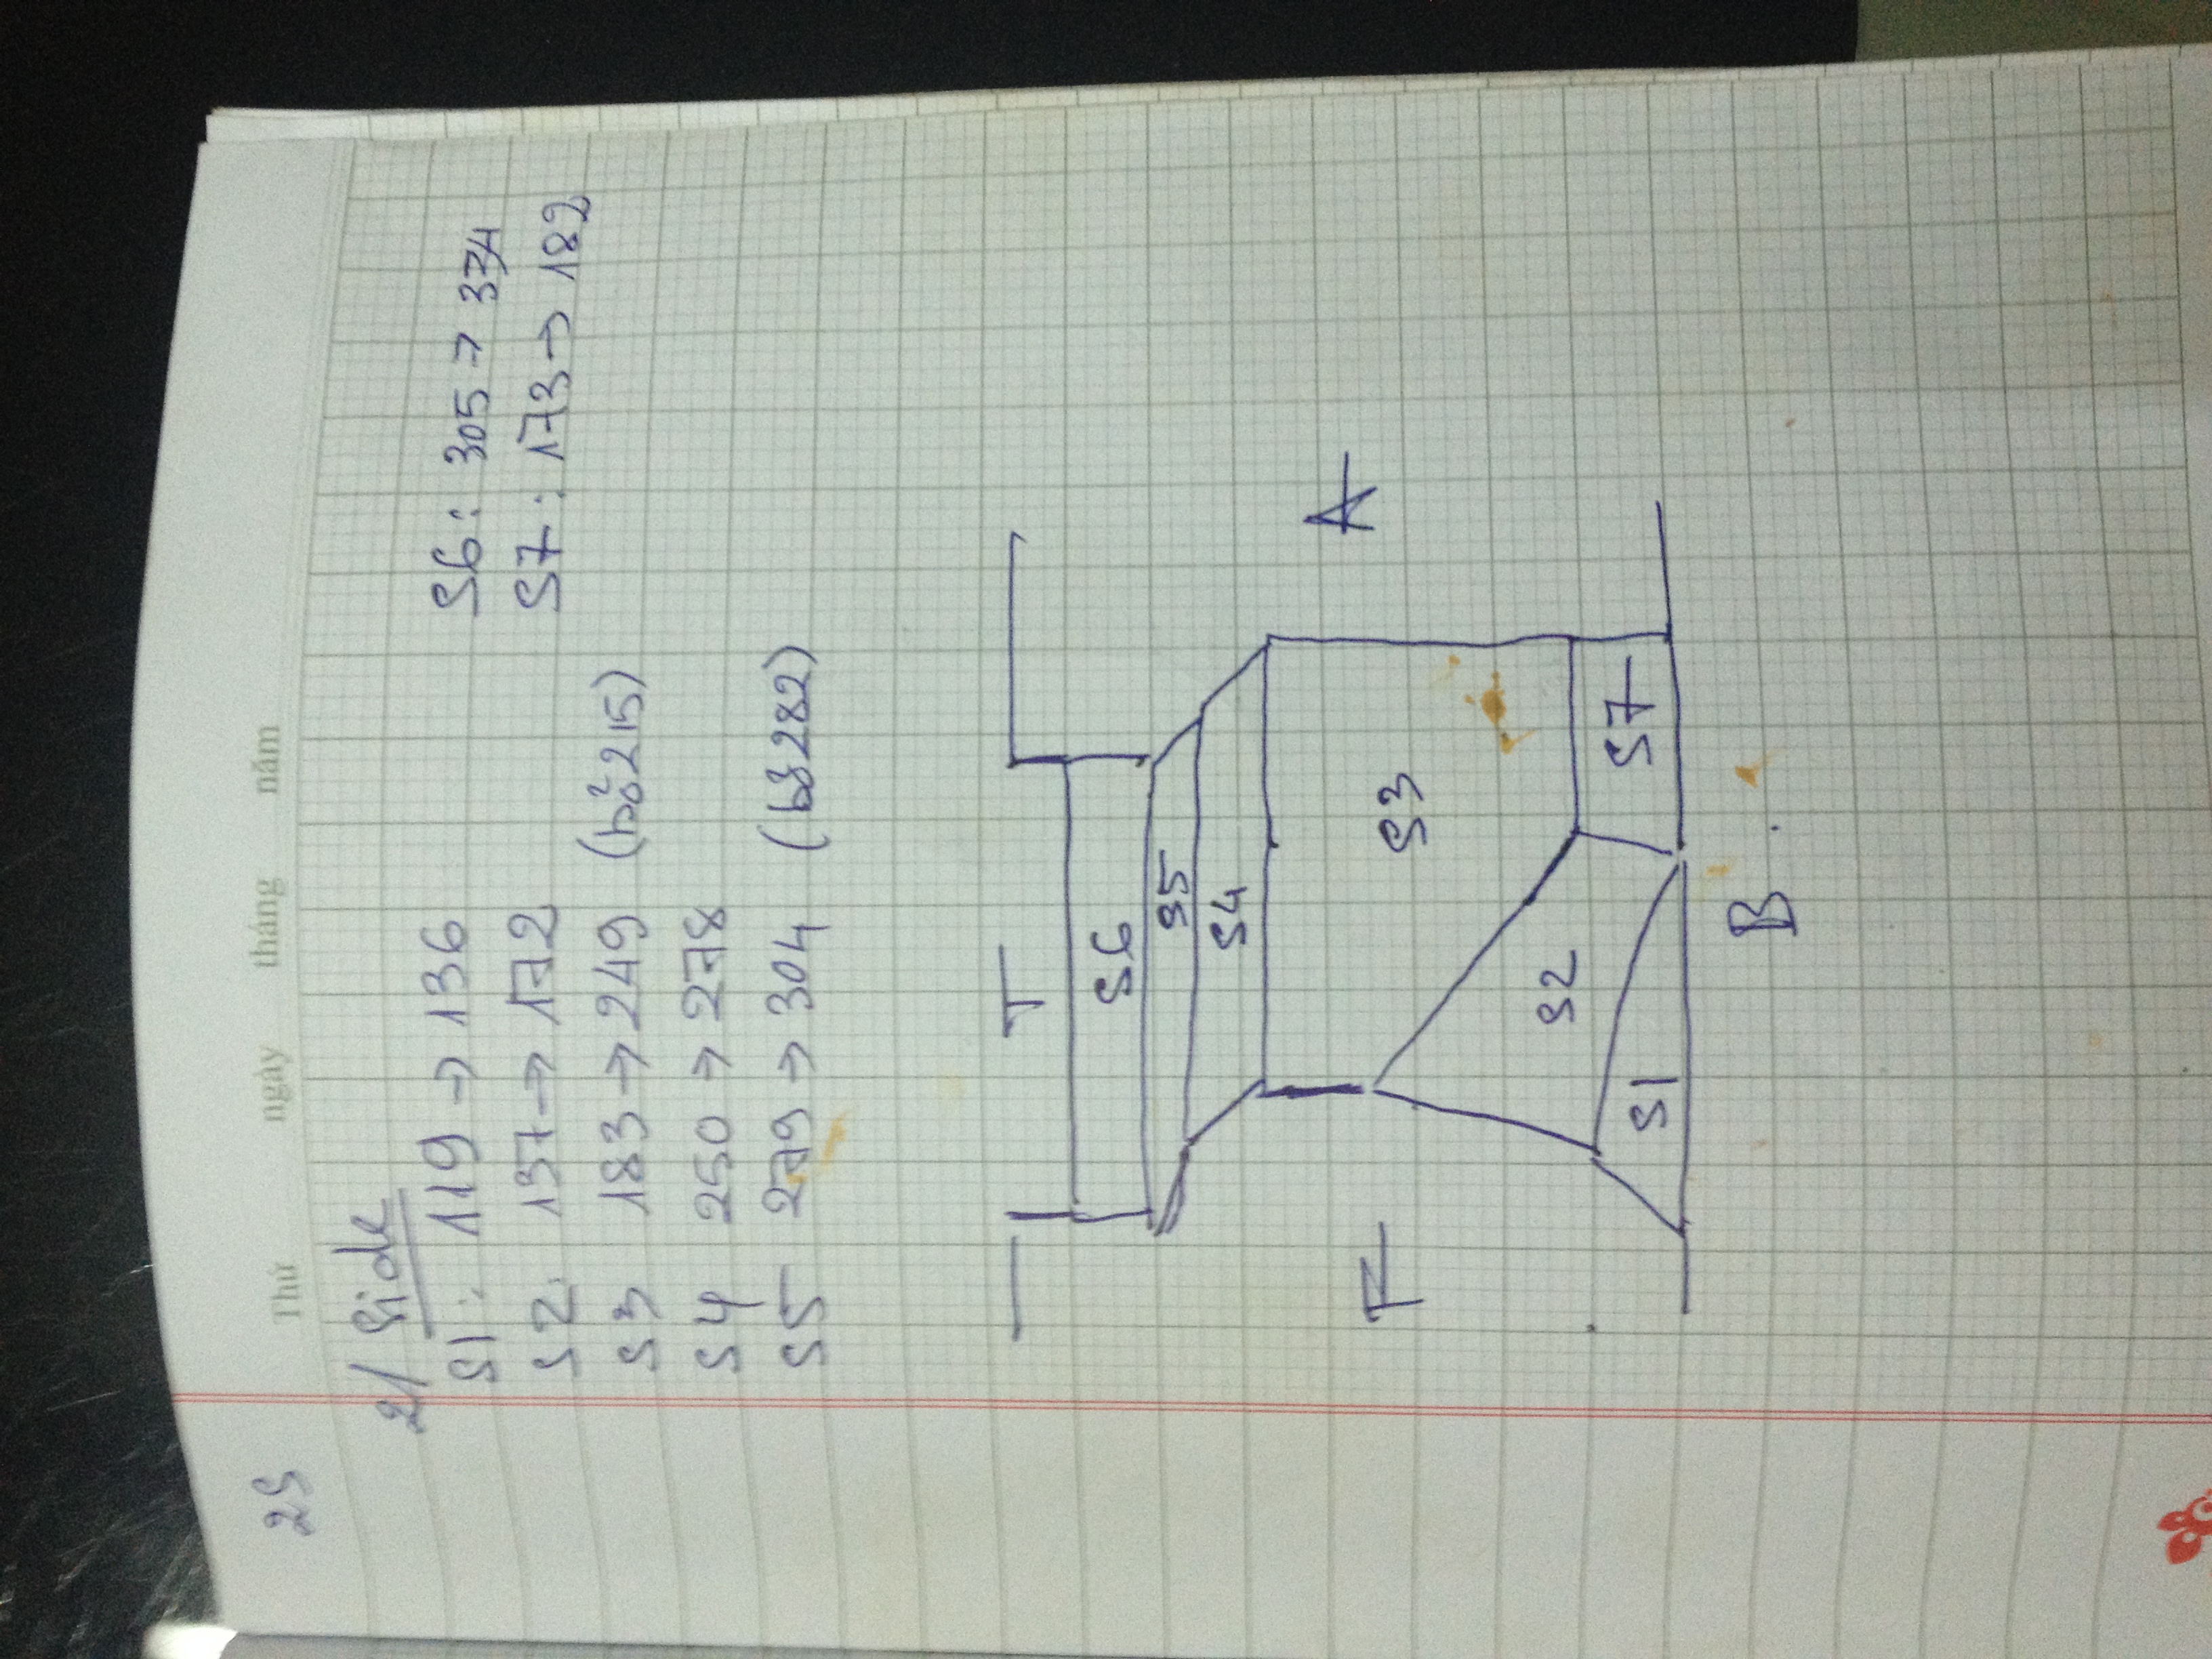 25
Thứ ngày tháng năm
2/ Side
S1: 119 → 136
S2: 137 → 172
S3 183 → 249 (bỏ 215)
S4 250 → 278
S5 279 → 304 (bỏ 282)
S6: 305 → 334
S7: 173 → 182
T
S6
S5
S4
F
S3
A
S2
S1
S7
B